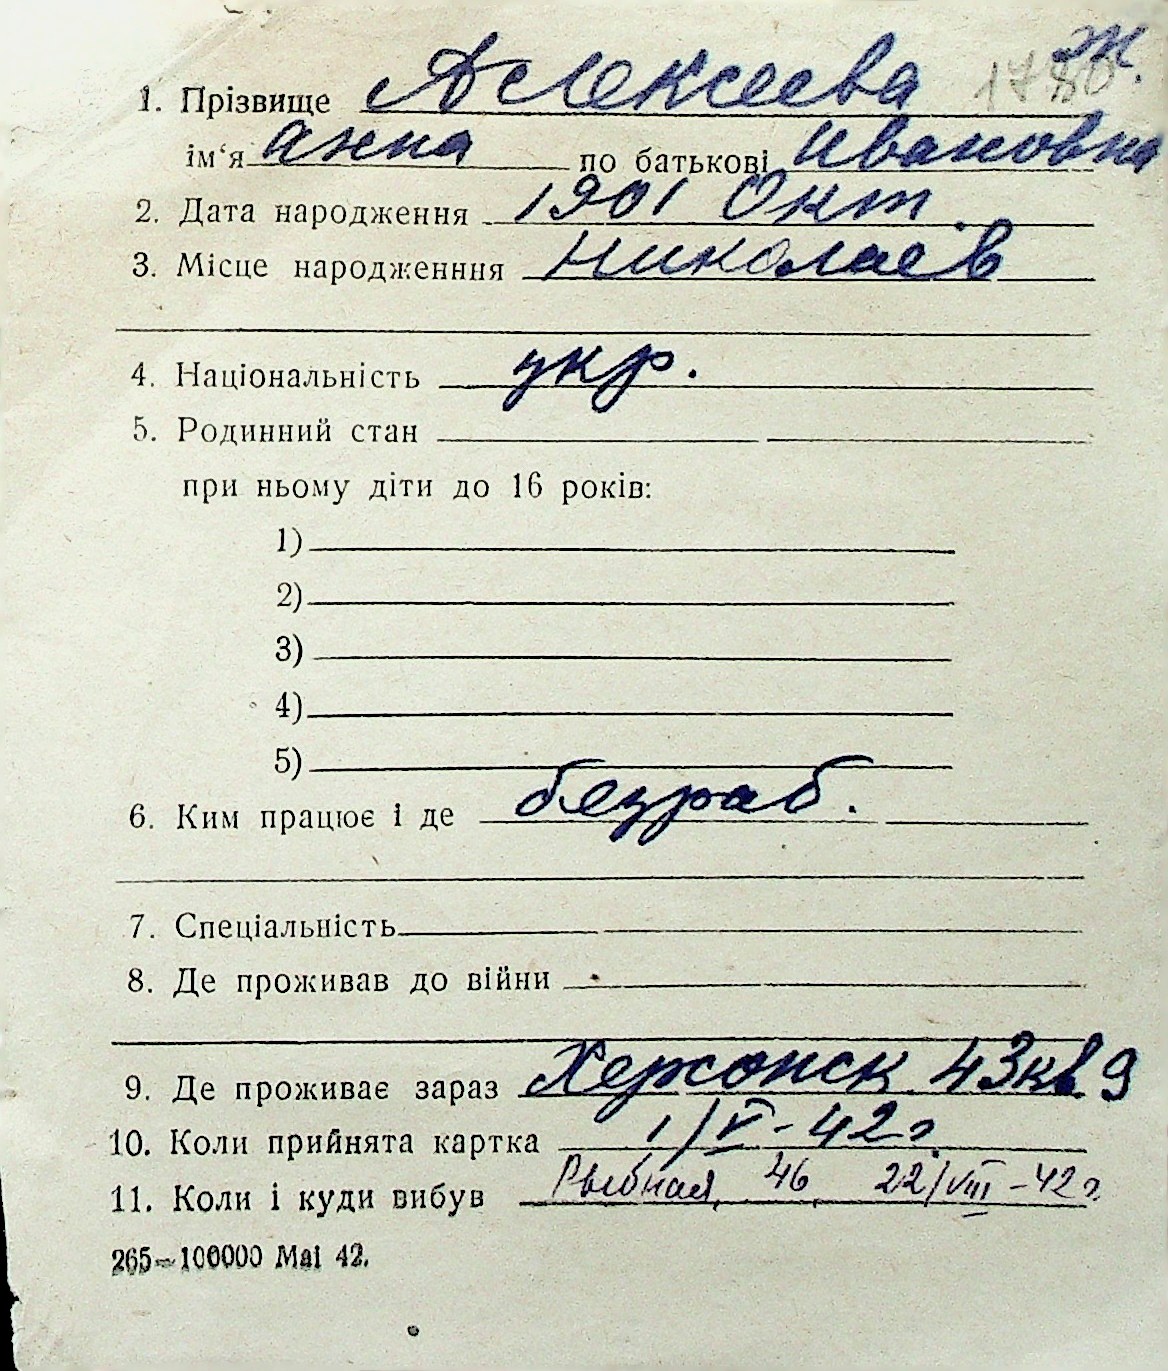 ж.
1. Прізвище Алексеева 1780
ім‘я Анна по батькові Ивановна
2. Дата народження 1901 Окт.
3. Місце народженння Николаев
4. Національність укр.
5. Родинний стан
при ньому діти до 16 років:
1)
2)
3)
4)
5)
6. Ким працює і де безраб.
7. Спеціальність
8. Де проживав до війни
9. Де проживає зараз Херсонск 43 кв. 9
10. Коли прийнята картка 1/V-42 г.
11. Коли і куди вибув Рыбная, 46, 22/VIII-42 г.
265—100000 Mai 42.